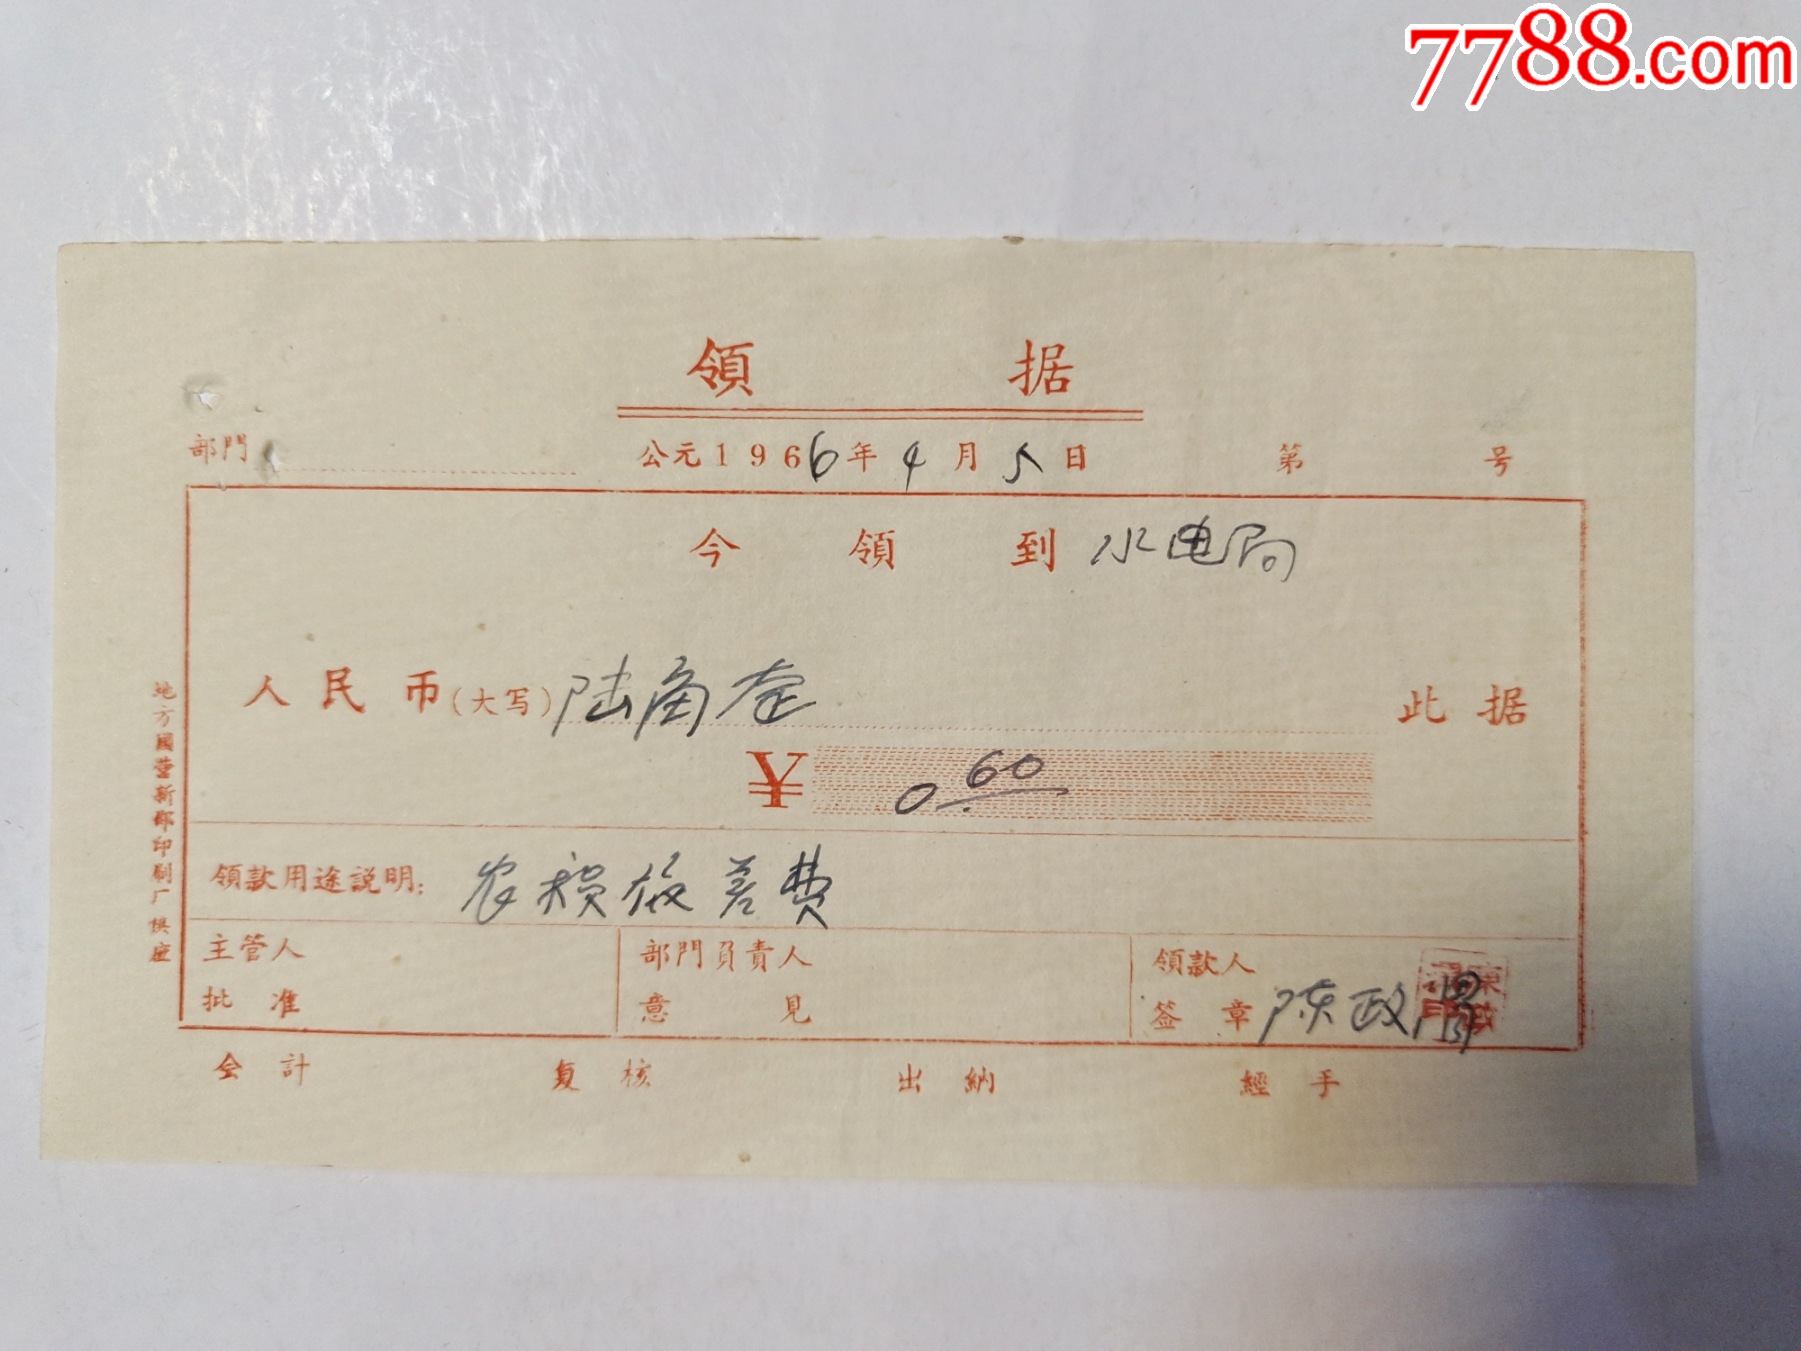 7788.com
領据
部門 公元1966年4月5日 第 号
今領到水电局
人民币(大写)陆角正 此据
¥ 0.60
領款用途説明: 农 费
主管人 部門負責人 領款人
批准 意見 签章 陈政
会計 复核 出納 經手
地方國营新都印刷厂供应